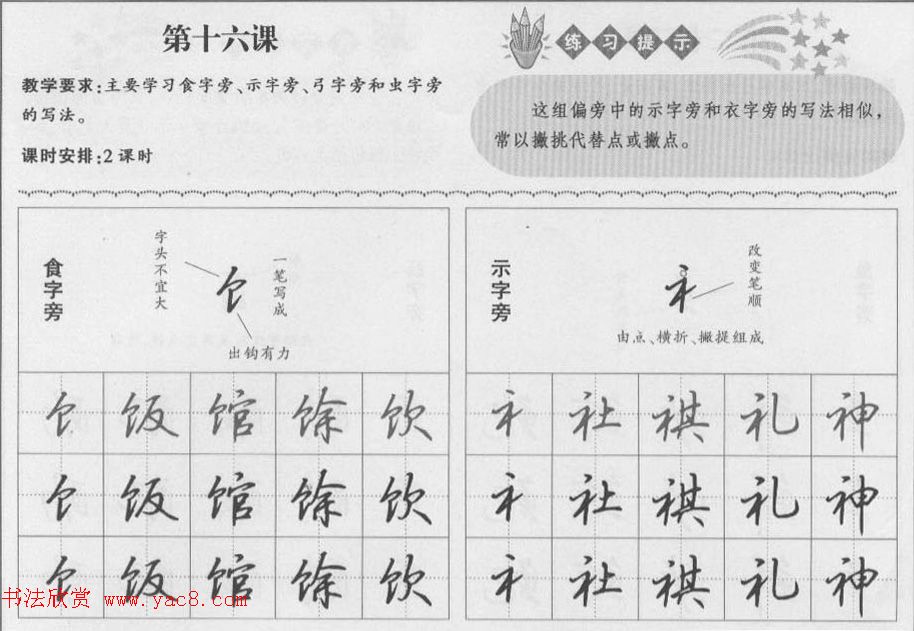 第十六课
教学要求:主要学习食字旁、示字旁、弓字旁和虫字旁
的写法。
课时安排:2课时
练习提示
这组偏旁中的示字旁和衣字旁的写法相似,
常以撇挑代替点或撇点。
食字旁
字头不宜大
饣
一笔写成
出钩有力
饣饭馆馀饮
饣饭馆馀饮
饣饭馆馀饮
示字旁
礻
改变笔顺
由点、横折、撇提组成
礻社祺礼神
礻社祺礼神
礻社祺礼神
书法欣赏 www.yac8.com